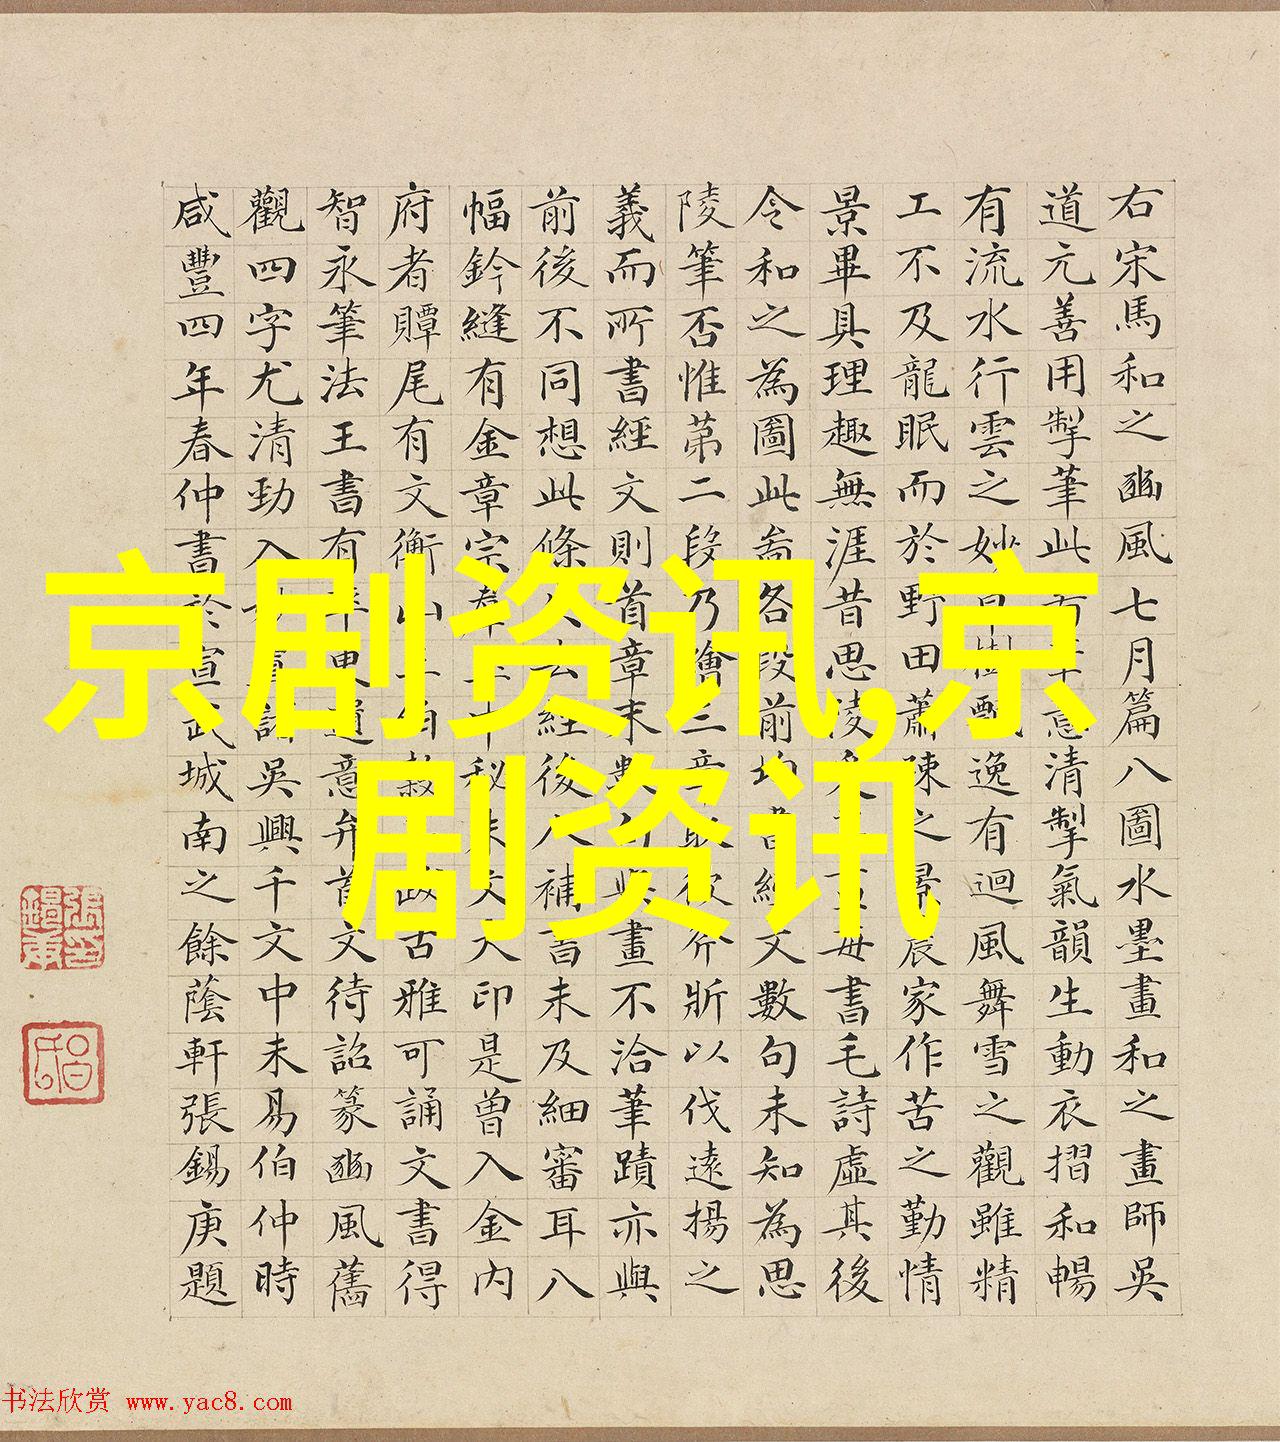 右宋馬和之豳風七月篇八圖水墨畫和之畫師吳
道元善用掣筆此意清掣氣韻生動衣摺和暢
有流水行雲之妙樹逸有迴風舞雪之觀雖精
工不及龍眠而於野田蕭疎之景農家作苦之勤情
景畢具理趣無涯昔思陵每書毛詩虛其後
令和之為圖此卷各段前均書經文數句未知為思
陵筆否惟第二段乃繪三章取彼斧斨以伐遠揚之
義而所書經文則首章末數句與畫不洽筆蹟亦與
前後不同想此條失去經後人補書未及細審耳八
幅鈐縫有金章宗秘文大印是曾入金內
府者贉尾有文衡山跋古雅可誦文書得
智永筆法王書有率更遺意弁首文待詔篆豳風舊
觀四字尤清勁入吳興千文中未易伯仲時
咸豐四年春仲書於宣武城南之餘蔭軒張錫庚題
京剧资讯,京
剧资讯
书法欣赏 www.yac8.com